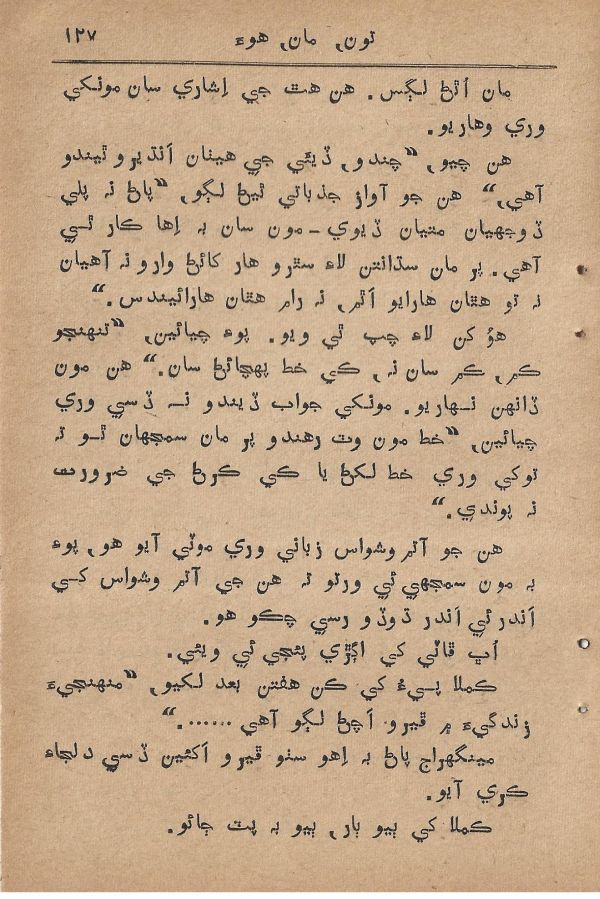 تون، مان، هوءَ ١٢٧
مان اُٿڻ لڳس. هن هٿ جي اِشاري سان مونکي
وري وهاريو.
هن چيو، ”چندو، ڏيئي جي هيٺان اَنڌيرو ٿيندو
آهي،“ هن جو آواز جذباتي ٿيڻ لڳو، ”پاڻ نہ پلي
ڏوجهيان متيان ڏيوي - مون سان بہ اِها ڪار ٿي
آهي. پر مان سڌائتن لاءِ سٿرو هار کائڻ وارو نہ آهيان
نہ ٿو هٿان هارايو اٿم، نہ رام هٿان هارائيندس.“
هوُ کن لاءِ چپ ٿي ويو. پوءِ چيائين، ”تنهنجو
ڪم، ڪم سان نہ، ڪي خط پهچائڻ سان.“ هن مون
ڏانهن نهاريو. مونکي جواب ڏيندو نہ ڏسي وري
چيائين، ”خط مون وٽ رهندو پر مان سمجهان ٿو تہ
توکي وري خط لکڻ يا ڪي ڪرڻ جي ضرورت
نہ پوندي.“
هن جو آتم وشواس زباني وري موٽي آيو هو، پوءِ
بہ مون سمجهي ئي ورتو تہ هن جي آتم وشواس کي
اَندر ئي اَندر ڌوڏو رسي چڪو هو.
اُڀ ڦاٽي کي اڳڙي پئجي ئي ويئي.
ڪملا پيءُ کي ڪن هفتن بعد لکيو، ”منهنجيءَ
زندگيءَ ۾ ڦيرو اَچڻ لڳو آهي .......“
مينگهراج پاڻ بہ اِهو سٺو ڦيرو اَکئين ڏسي دلجاءِ
ڪري آيو.
ڪملا کي ٻيو ٻار، ٻيو بہ پٽ ڄائو.